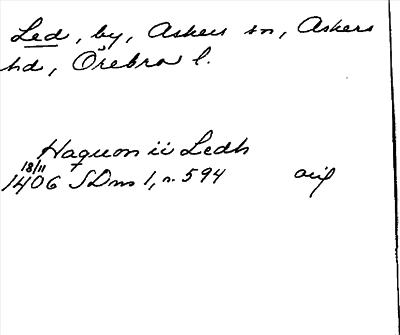 Led, by, Askers sn, Askers
hd, Örebro l.
Haquon ii Ledh
18/11
1406 SDns 1, n. 594 orig